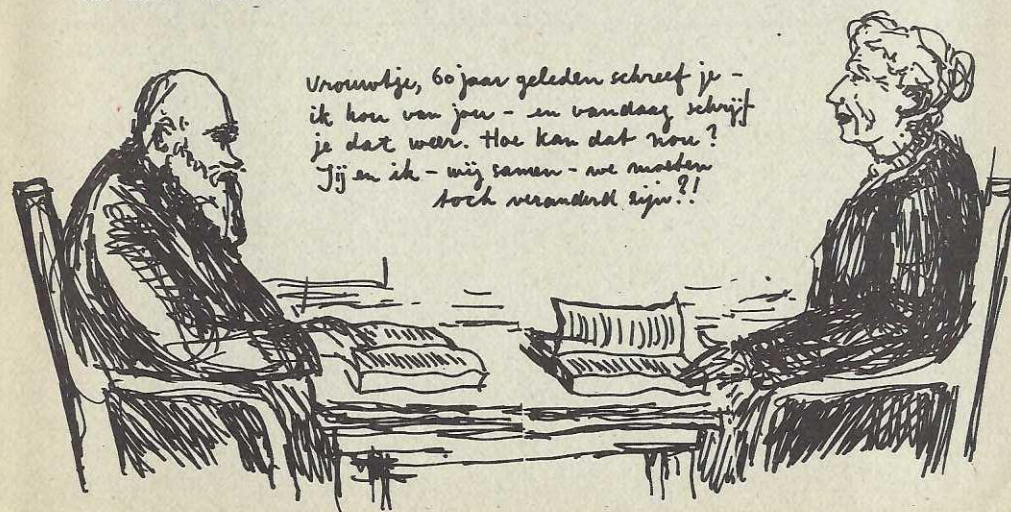 Vrouwtje, 60 jaar geleden schreef je -
ik hou van jou - en vandaag schrijf
je dat weer. Hoe kan dat nou?
Jij en ik - wij samen - we moeten
toch veranderd zijn?!